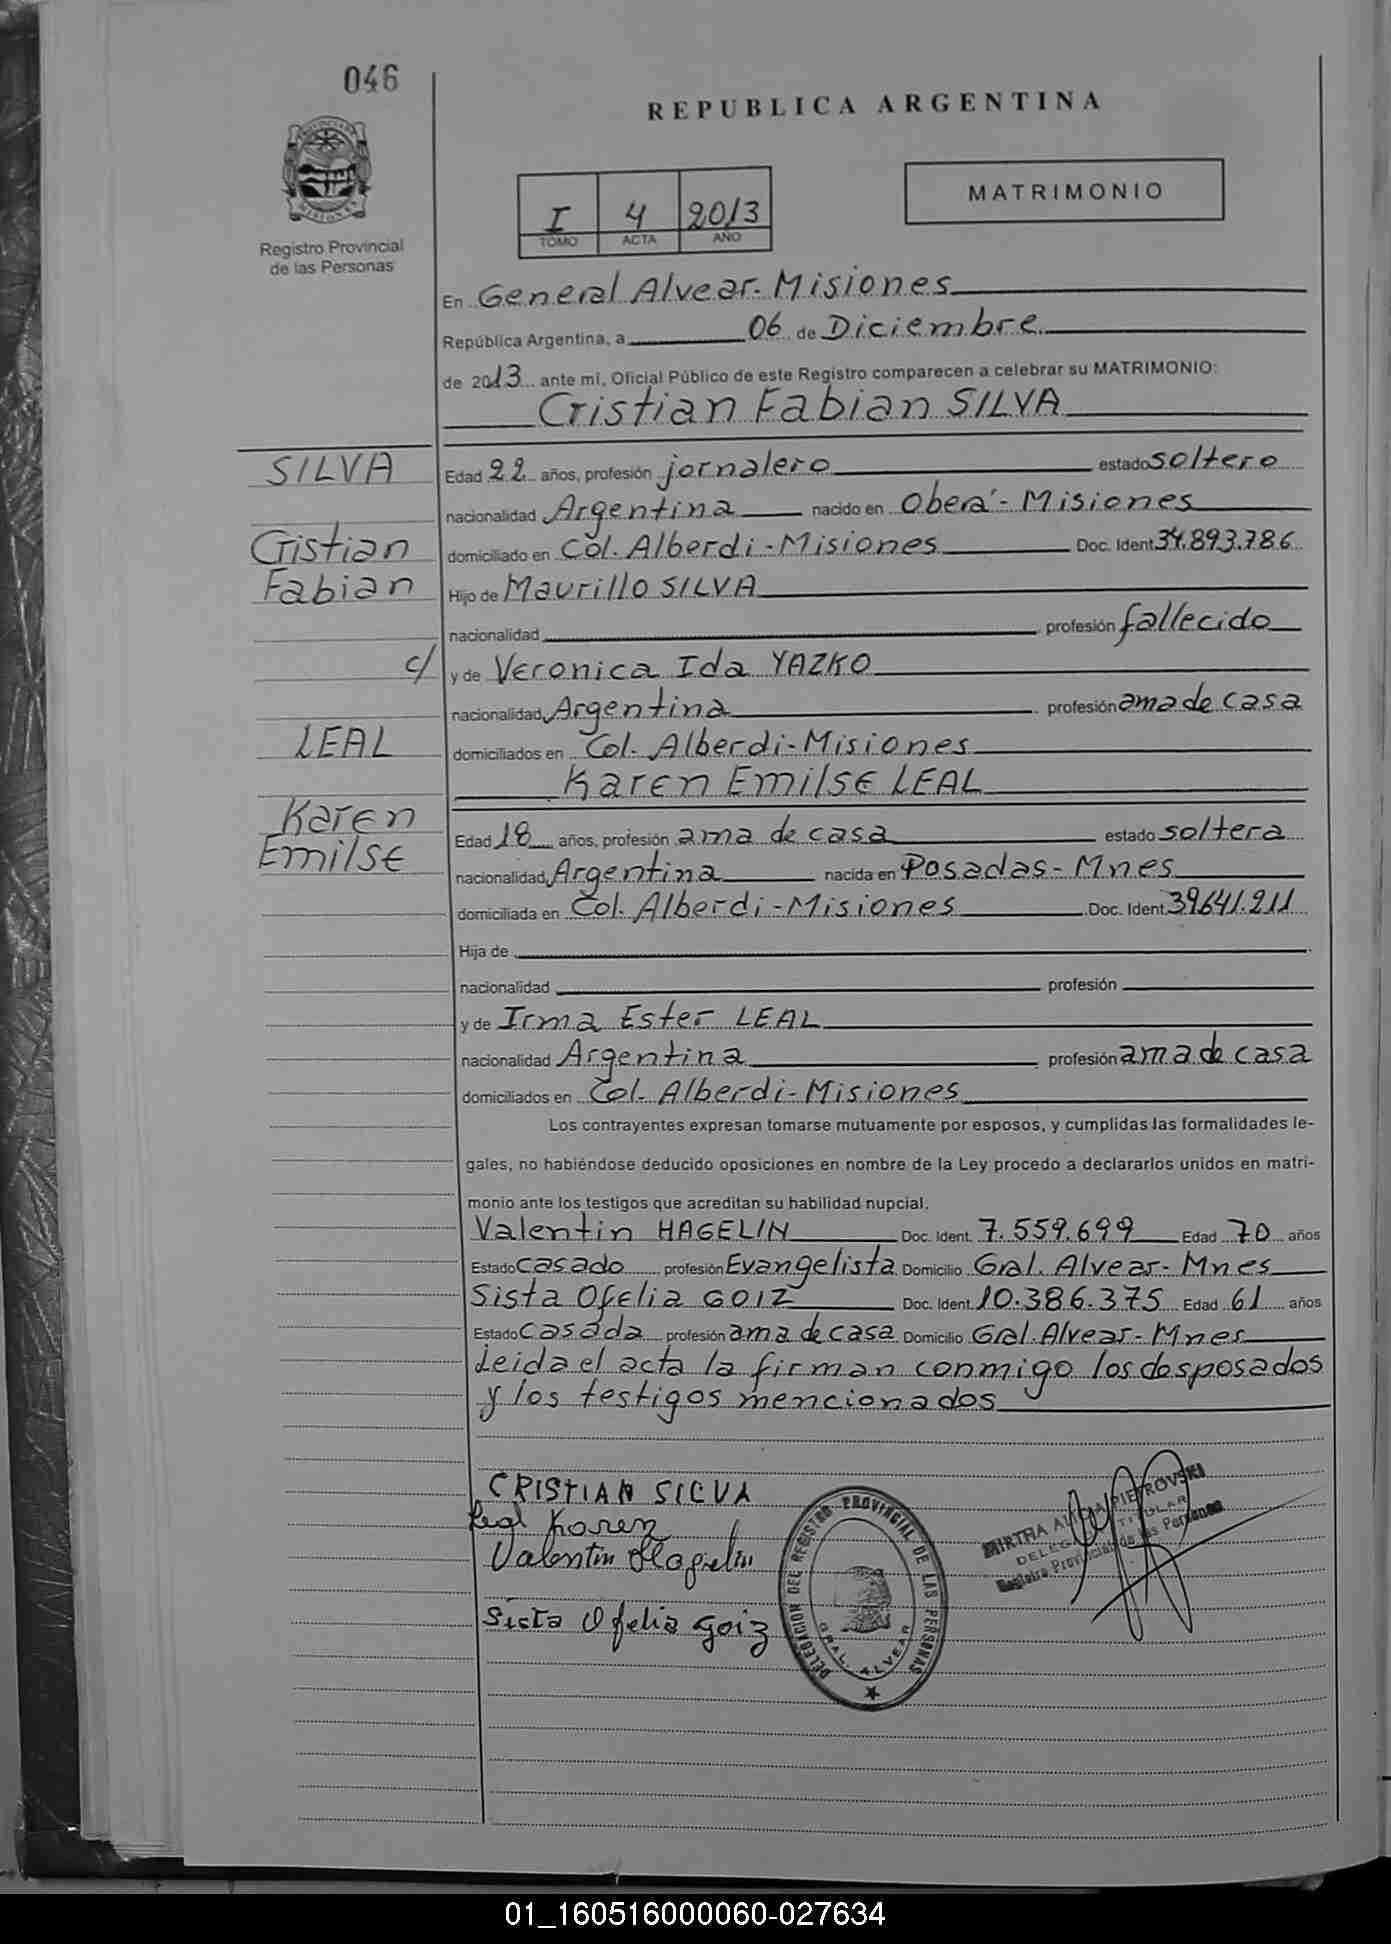 046
REPUBLICA ARGENTINA
Registro Provincial
de las Personas
I 4 2013
TOMO ACTA AÑO
MATRIMONIO
En General Alvear-Misiones
República Argentina, a 06 de Diciembre
de 2013 ante mí, Oficial Público de este Registro comparecen a celebrar su MATRIMONIO:
Cristian Fabian SILVA
SILVA
Cristian
Fabian
c/
LEAL
Karen
Emilse
Edad 22 años, profesión jornalero estado soltero
nacionalidad Argentina nacido en Oberá-Misiones
domiciliado en Col. Alberdi-Misiones Doc. Ident. 34.893.786
Hijo de Maurillo SILVA
nacionalidad profesión fallecido
y de Veronica Ida YAZKO
nacionalidad Argentina profesión ama de casa
domiciliados en Col. Alberdi-Misiones
Karen Emilse LEAL
Edad 18 años, profesión ama de casa estado soltera
nacionalidad Argentina nacida en Posadas-Mnes
domiciliada en Col. Alberdi-Misiones Doc. Ident. 39.641.211
Hija de
nacionalidad profesión
y de Irma Ester LEAL
nacionalidad Argentina profesión ama de casa
domiciliados en Col. Alberdi-Misiones
Los contrayentes expresan tomarse mutuamente por esposos, y cumplidas las formalidades le-
gales, no habiéndose deducido oposiciones en nombre de la Ley procedo a declararlos unidos en matri-
monio ante los testigos que acreditan su habilidad nupcial.
Valentin HAGELIN Doc. Ident. 7.559.699 Edad 70 años
Estado casado profesión Evangelista Domicilio Gral. Alvear-Mnes
Sista Ofelia GOIZ Doc. Ident. 10.386.375 Edad 61 años
Estado casada profesión ama de casa Domicilio Gral. Alvear-Mnes
Leida el acta la firman conmigo los desposados
y los testigos mencionados
CRISTIAN SILVA
Leal Karen
Valentin Hagelin
Sista Ofelia Goiz
DELEGACION DEL REGISTRO PROVINCIAL DE LAS PERSONAS
GRAL. ALVEAR
MIRTHA ALICIA PIETROVSKI
DELEGADA TITULAR
Registro Provincial de las Personas
01_160516000060-027634